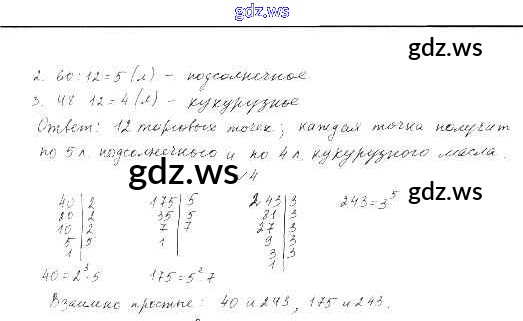 gdz.ws
gdz.ws
2. 60:12=5 (л) – подсолнечное
3. 48 12=4 (л) – кукурузное
Ответ: 12 торговых точек; каждая точка получит
по 5 л. подсолнечного и по 4 л. кукурузного масла.
gdz.ws
4
40|2 175|5 243|3 243=3⁵
20|2 35|5 81|3
10|2 7|7 27|3
5|5 1 9|3
1 3|3
1
gdz.ws
40=2³·5 175=5²·7
Взаимно простые: 40 и 243; 175 и 243.